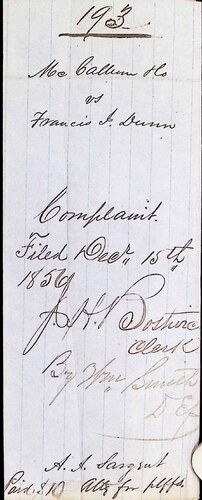 193
McCallum Ho
vs
Francis J. Dunn
Complaint.
Filed Decr 15th
1856
J. H. Bostwic
Clerk
By Wm Smith
D C
A. A. Sargent
Paid $10 Atty for plffs.